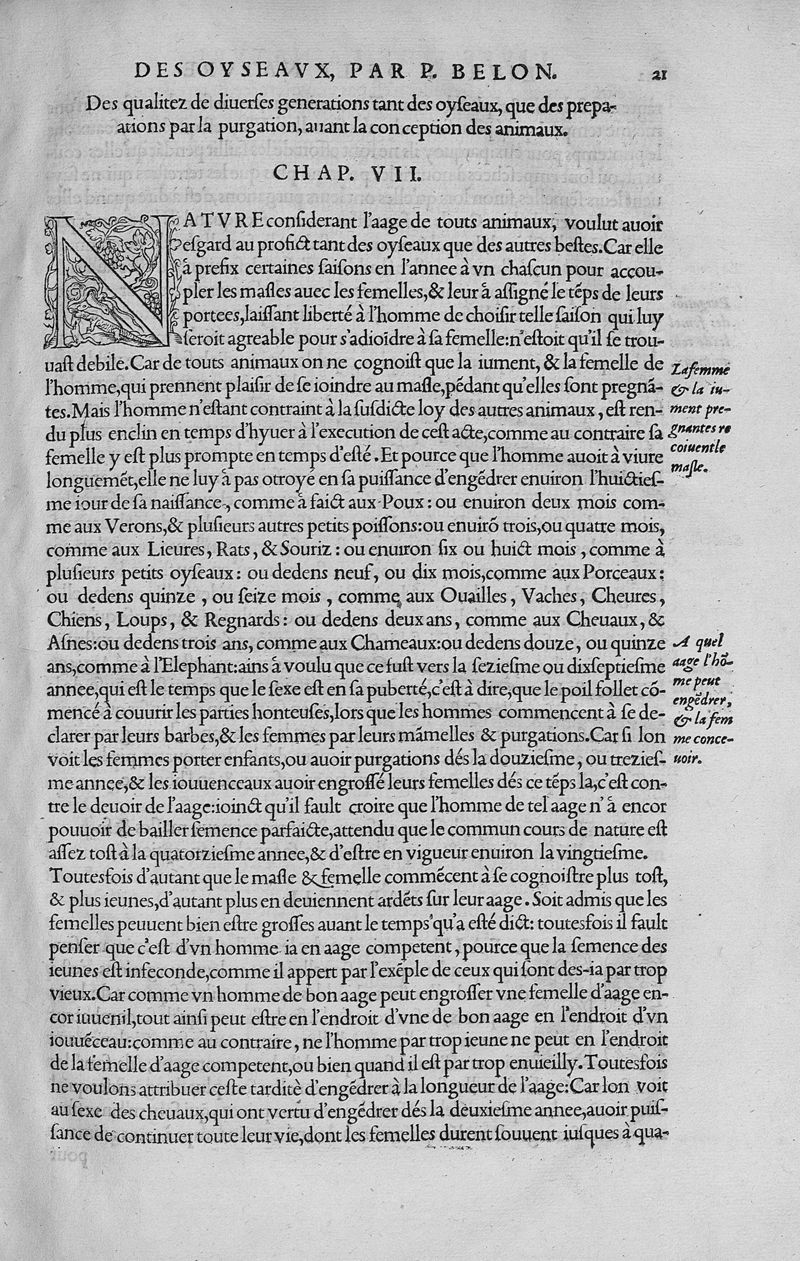 DES OYSEAVX, PAR P. BELON. 21
Des qualitez de diuerſes generations tant des oyſeaux, que des prepa-
ations par la purgation, auant la conception des animaux.
CHAP. VII.
NATVRE conſiderant l'aage de touts animaux, voulut auoir
eſgard au profict tant des oyſeaux que des autres beſtes. Car elle
à prefix certaines ſaiſons en l'annee à vn chaſcun pour accou-
pler les maſles auec les femelles, & leur à aſſigné le tẽps de leurs
portees, laiſſant liberté à l'homme de choiſir telle ſaiſon qui luy
ſeroit agreable pour s'adioĩdre à ſa femelle: n'eſtoit qu'il ſe trou-
uaſt debile. Car de touts animaux on ne cognoiſt que la iument, & la femelle de
l'homme, qui prennent plaiſir de ſe ioindre au maſle, pẽdant qu'elles ſont pregnã-
tes. Mais l'homme n'eſtant contraint à la ſuſdicte loy des autres animaux, eſt ren-
du plus enclin en temps d'hyuer à l'execution de ceſt acte, comme au contraire ſa
femelle y eſt plus prompte en temps d'eſté. Et pource que l'homme auoit à viure
longuemẽt, elle ne luy à pas otroyé en ſa puiſſance d'engẽdrer enuiron l'huictieſ-
me iour de ſa naiſſance, comme à faict aux Poux: ou enuiron deux mois com-
me aux Verons, & pluſieurs autres petits poiſſons: ou enuirõ trois, ou quatre mois,
comme aux Lieures, Rats, & Souriz: ou enuiron ſix ou huict mois, comme à
pluſieurs petits oyſeaux: ou dedens neuf, ou dix mois, comme aux Porceaux:
ou dedens quinze, ou ſeize mois, comme aux Ouailles, Vaches, Cheures,
Chiens, Loups, & Regnards: ou dedens deux ans, comme aux Cheuaux, &
Aſnes: ou dedens trois ans, comme aux Chameaux: ou dedens douze, ou quinze
ans, comme à l'Elephant: ains à voulu que ce fuſt vers la ſezieſme ou dixſeptieſme
annee, qui eſt le temps que le ſexe eſt en ſa puberté, c'eſt à dire, que le poil follet cõ-
mencé à couurir les parties honteuſes, lors que les hommes commencent à ſe de-
clarer par leurs barbes, & les femmes par leurs mãmelles & purgations. Car ſi lon
voit les femmes porter enfants, ou auoir purgations dés la douzieſme, ou trezieſ-
me annee, & les iouuenceaux auoir engroſſé leurs femelles dés ce tẽps la, c'eſt con-
tre le deuoir de l'aage: ioinct qu'il fault croire que l'homme de tel aage n'à encor
pouuoir de bailler ſemence parfaicte, attendu que le commun cours de nature eſt
aſſez toſt à la quatorzieſme annee, & d'eſtre en vigueur enuiron la vingtieſme.
Toutesfois d'autant que le maſle & femelle commẽcent à ſe cognoiſtre plus toſt,
& plus ieunes, d'autant plus en deuiennent ardẽts ſur leur aage. Soit admis que les
femelles peuuent bien eſtre groſſes auant le temps qu'a eſté dict: toutesfois il fault
penſer que c'eſt d'vn homme ia en aage competent, pource que la ſemence des
ieunes eſt infeconde, comme il appert par l'exẽple de ceux qui ſont des-ia par trop
vieux. Car comme vn homme de bon aage peut engroſſer vne femelle d'aage en-
cor iuuenil, tout ainſi peut eſtre en l'endroit d'vne de bon aage en l'endroit d'vn
iouuẽceau: comme au contraire, ne l'homme par trop ieune ne peut en l'endroit
de la femelle d'aage competent, ou bien quand il eſt par trop enuieilly. Toutesfois
ne voulons attribuer ceſte tarditè d'engẽdrer à la longueur de l'aage: Car lon voit
au ſexe des cheuaux, qui ont vertu d'engẽdrer dés la deuxieſme annee, auoir puiſ-
ſance de continuer toute leur vie, dont les femelles durent ſouuent iuſques à qua-
La femme
& la iu-
ment pre-
gnantes re
coiuent le
maſle.
A quel
aage l'hõ-
me peut
engẽdrer,
& la fem
me conce-
uoir.